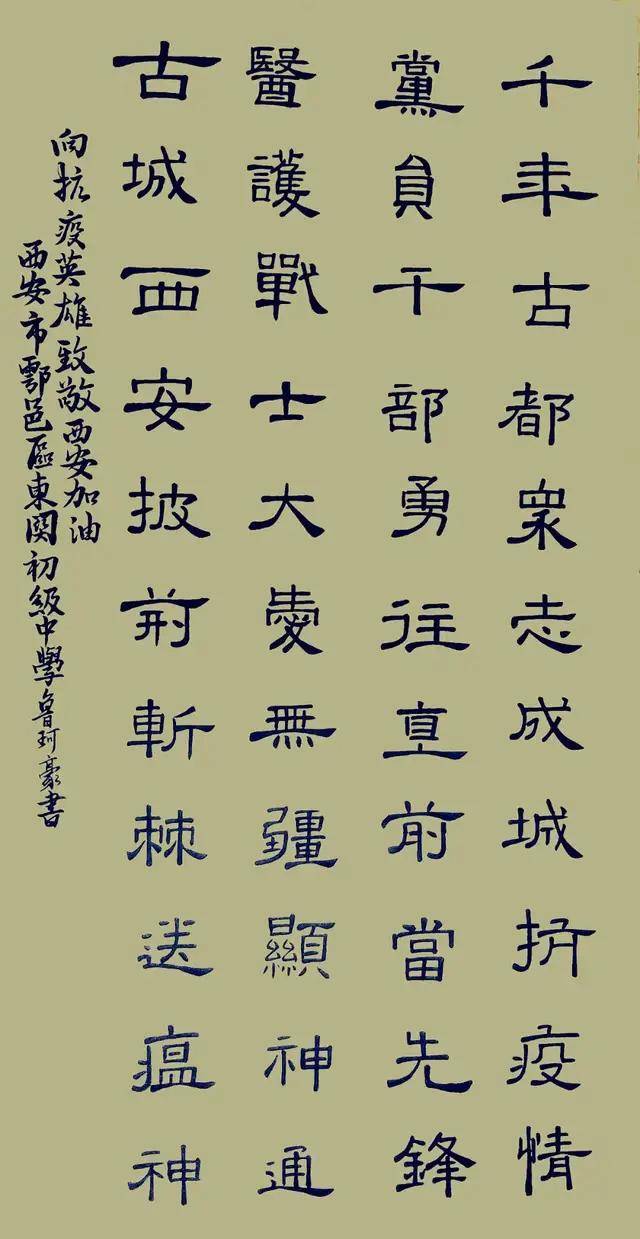 千年古都眾志成城抗疫情
黨員干部勇往直前當先鋒
醫護戰士大愛無疆顯神通
古城西安披荊斬棘送瘟神
向抗疫英雄致敬西安加油
西安市鄠邑區東関初級中學魯珂豪書